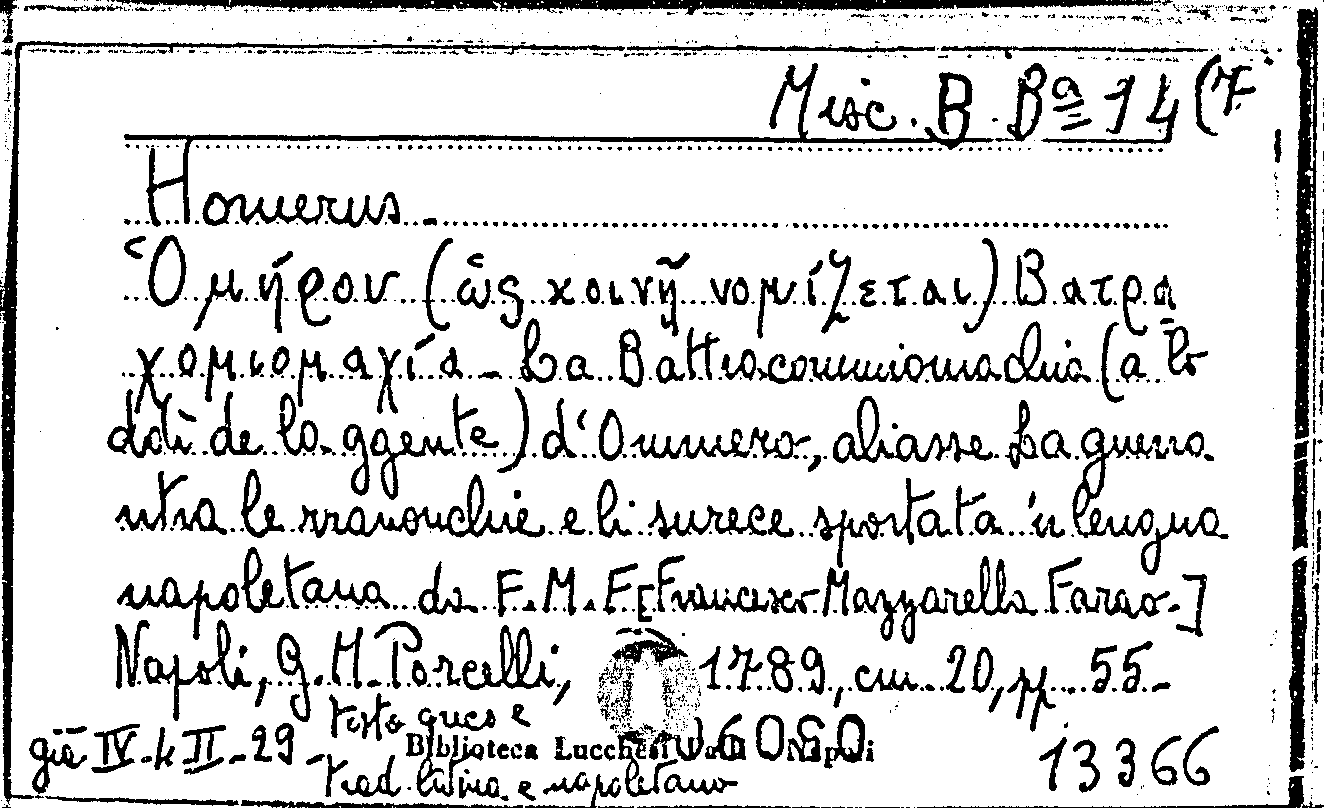 Misc. B. Bª 14 (7
Homerus -
Ὁμήρου (ὡς κοινῇ νομίζεται) Βατρα
χομιομαχία - La Battracommiomachia (a lo
ddi de la ggente) d'Ommero, aliasse La guerra
ntra le rranonchie e li surece sportata 'n lengua
napoletana da F. M. F [Francesco Mazzarella Farao-]
Napoli, G. M. Porcelli, 1789, cm. 20, pp. 55-
testo greco e
già IV-4-II-29-
Biblioteca Lucchesi Napoli
trad. latina e napoletano
13366